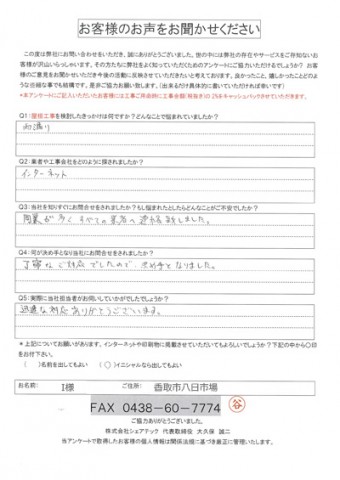 お客様のお声をお聞かせください
この度は弊社にお問い合わせをいただき、誠にありがとうございました。世の中には弊社の存在やサービスをご存知ないお
客様が沢山いらっしゃいます。その方たちに弊社をよく知っていただくためのアンケートにご協力いただけるでしょうか? お客
様のご意見をお聞かせいただき今後の活動に反映させていただきたいと考えております。良かったこと、嬉しかったことどのよ
うな些細な事でも結構です。是非ご協力お願い致します。(出来るだけ具体的に書いていただければ幸いです)
*本アンケートにご記入いただいたお客様には工事ご用命時に工事金額(税抜き)の2%をキャッシュバックさせていただきます。
Q1:屋根工事を検討したきっかけは何ですか?どんなことで悩まれていましたか?
雨漏り
Q2:業者や工事会社をどのように探されましたか?
インターネット
Q3:当社を知りすぐにお問合せをされましたか?もし悩まれたとしたらどんなことがご不安でしたか?
すべての業者へ連絡致しました。
Q4:何が決め手となり当社にお問合せをされましたか?
丁寧なご対応でしたので、決め手となりました。
Q5:実際に当社担当者がお伺いしていかがでしたでしょうか?
迅速な対応ありがとうございます。
*上記についてお願いがあります。インターネットや印刷物に掲載させていただいてもよろしいでしょうか?下記の中から○印
をお付け下さい。
( )名前を出してもよい (○)イニシャルなら出してもよい
お名前: I様 ご住所: 香取市八日市場
FAX 0438-60-7774 谷
ご協力ありがとうございました。
株式会社シェアテック 代表取締役 大久保 誠二
当アンケートで取得したお客様の個人情報は関係法規に基づき厳正に管理いたします。